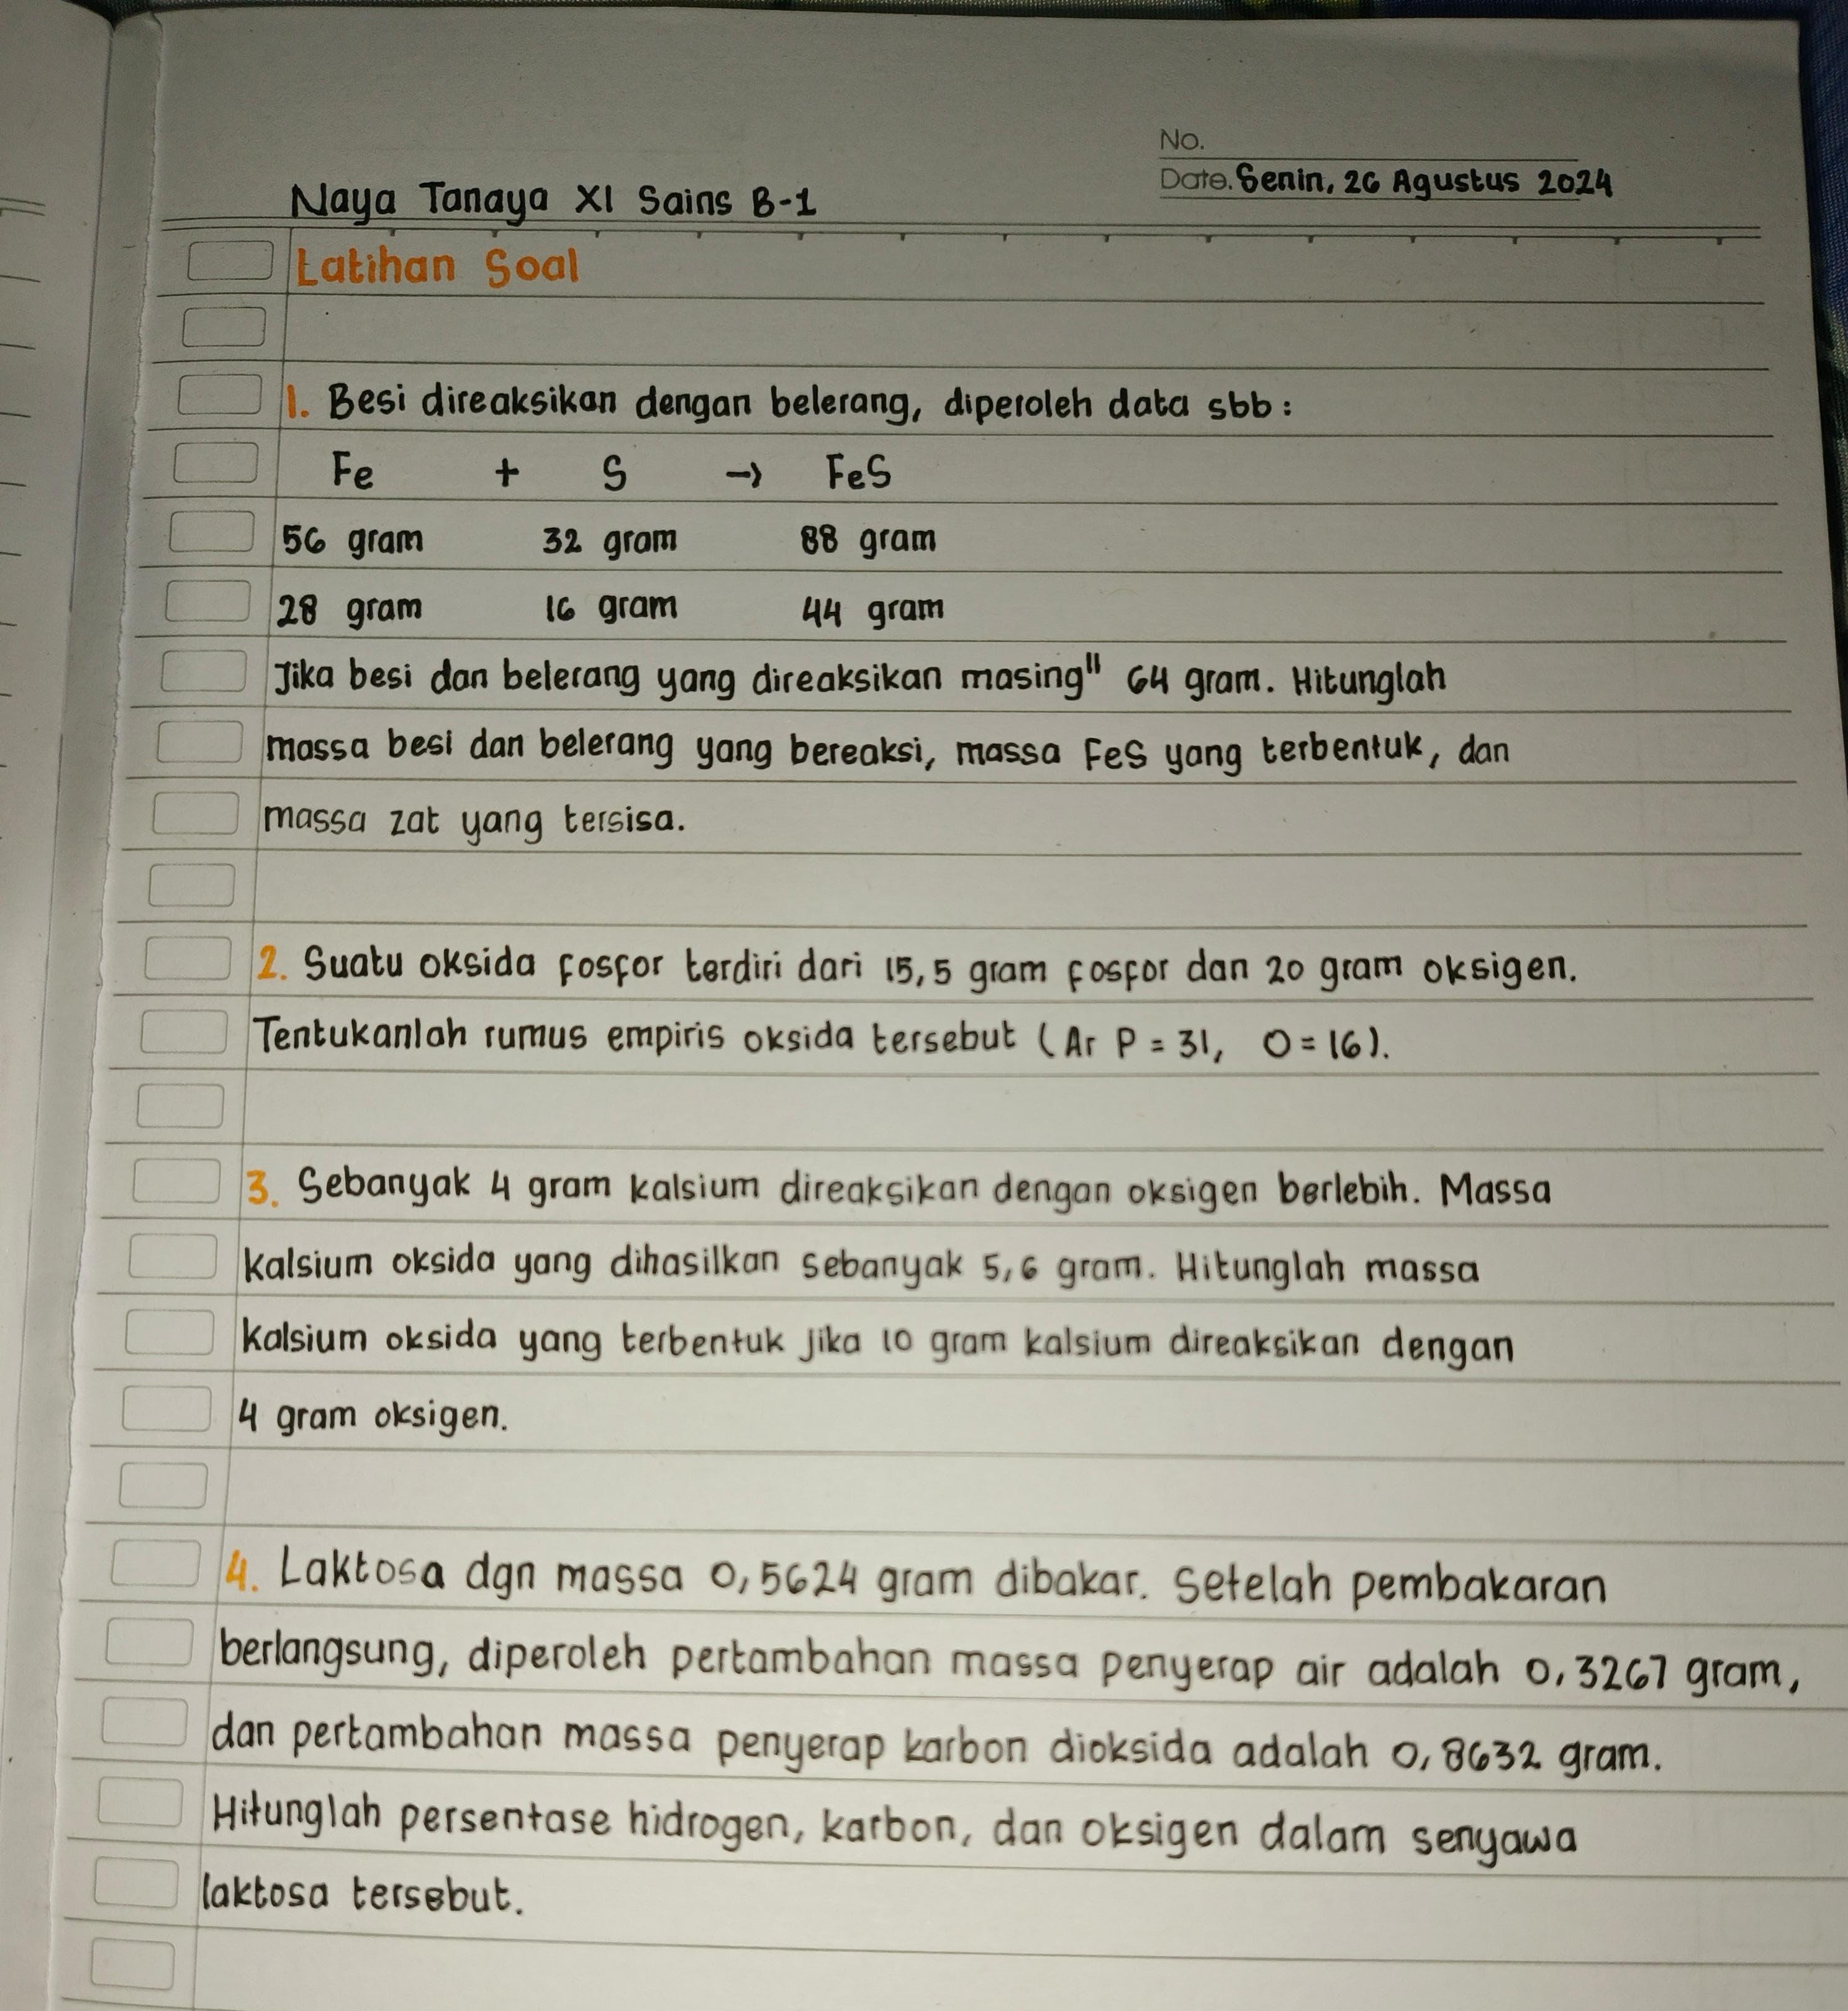 No.
Date. Senin, 26 Agustus 2024
Naya Tanaya XI Sains B-1
Latihan Soal
1. Besi direaksikan dengan belerang, diperoleh data sbb :
Fe + S → FeS
56 gram 32 gram 88 gram
28 gram 16 gram 44 gram
Jika besi dan belerang yang direaksikan masing" 64 gram. Hitunglah
massa besi dan belerang yang bereaksi, massa FeS yang terbentuk, dan
massa zat yang tersisa.
2. Suatu oksida fosfor terdiri dari 15,5 gram fosfor dan 20 gram oksigen.
Tentukanlah rumus empiris oksida tersebut (Ar P = 31, O = 16).
3. Sebanyak 4 gram kalsium direaksikan dengan oksigen berlebih. Massa
kalsium oksida yang dihasilkan sebanyak 5,6 gram. Hitunglah massa
kalsium oksida yang terbentuk jika 10 gram kalsium direaksikan dengan
4 gram oksigen.
4. Laktosa dgn massa 0,5624 gram dibakar. Setelah pembakaran
berlangsung, diperoleh pertambahan massa penyerap air adalah 0,3267 gram,
dan pertambahan massa penyerap karbon dioksida adalah 0,8632 gram.
Hitunglah persentase hidrogen, karbon, dan oksigen dalam senyawa
laktosa tersebut.